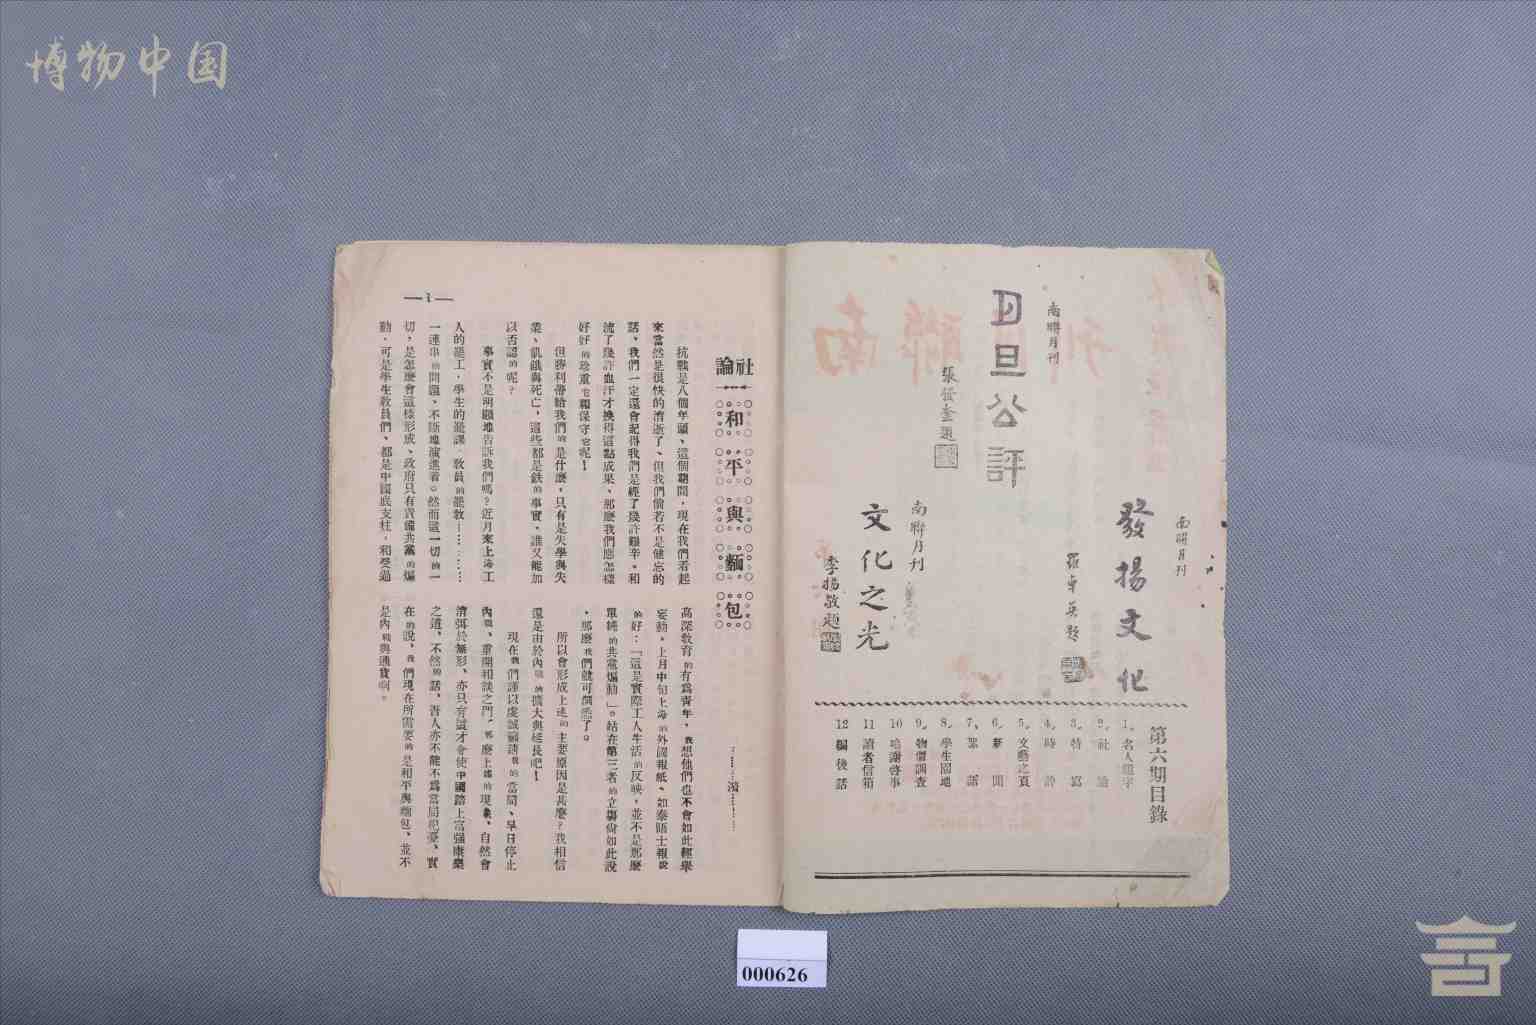 博物中国
南聯月刊
發揚文化
羅卓英題
南聯月刊
月旦公評
張發奎題
南聯月刊
文化之光
李揚敬題
第六期目錄
1. 名人題字
2. 社論
3. 特寫
4. 時評
5. 文藝之頁
6. 新聞
7. 眾話
8. 學生園地
9. 物價調查
10 鳴謝啓事
11 讀者信箱
12 編後話
社論
和平與麵包
抗戰是八個年頭、這個期間、現在我們看起
來當然是很快的消逝了、但我們倘若不是健忘的
話、我們一定還會記得我們是經了幾許艱辛、和
流了幾許血汗才換得這點成果、那麼我們應怎樣
好好的珍重它和保守它呢！
但勝利帶給我們的是什麼、只有是失學與失
業、飢餓與死亡、這些都是鉄的事實、誰又能加
以否認的呢？
事實不是明顯地告訴我們嗎？近月來上海工
人的罷工、學生的罷課、敎員的罷敎……
一連串的問題、不斷地演進着。然而這一切的一
切、是怎麼會這樣形成、政府只有責備共黨的煽
動、可是學生敎員們、都是中國底支柱、和受過
高深敎育的有爲靑年、我想他們也不會如此輕舉
妄動、上月中旬上海的外國報紙、如泰晤士報說
的好：「這是實際工人生活的反映，並不是那麼
單純的共黨煽動」。站在第三者的立塲尙如此說
、那麼我們就可洞悉了。
所以會形成上述的主要原因是甚麼？我相信
還是由於內戰的擴大與延長吧！
現在我們謹以虔誠籲請我的當局、早日停止
內戰、重開和談之門、那麼上述的現象、自然會
消弭於無形、亦只有這才會使中國踏上富强康樂
之道、不然的話、吾人亦不能不爲當局杞憂、實
在的說、我們現在所需要的是和平與麵包、並不
是內戰與通貨啊。
000626